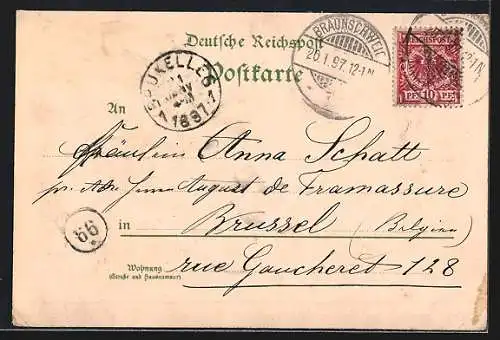 Deutsche Reichspost
Postkarte
BRAUNSCHWEIG
26.1.97.12-1N
REICHSPOST
10 PF. 10
BRUXELLES
1897
An
Fräulein Anna Schatt
pr. Adr. Herrn August de Framassure
in Brüssel (Belgien)
66
Wohnung
(Straße und Hausnummer)
rue Gaucheret 128